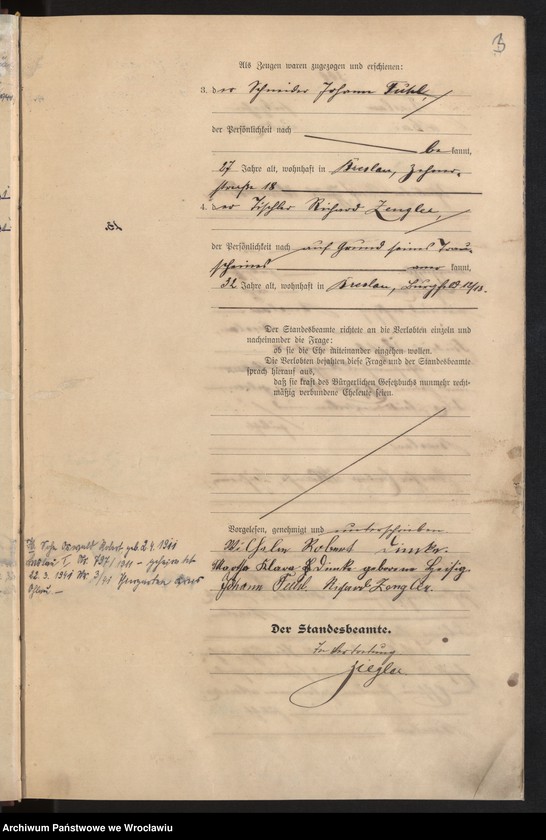 B
Als Zeugen waren zugezogen und erschienen:
3. der Schneider Johann
der Persönlichkeit nach
be kannt,
27 Jahre alt, wohnhaft in Breslau,
straße 18
4. der Tischler Richard Zengler,
der Persönlichkeit nach auf Grund seines Trau-
scheines aner kannt,
32 Jahre alt, wohnhaft in Breslau, Burgfeld 12/13.
Der Standesbeamte richtete an die Verlobten einzeln und
nacheinander die Frage:
ob sie die Ehe miteinander eingehen wollen.
Die Verlobten bejahten diese Frage und der Standesbeamte
sprach hierauf aus,
daß sie kraft des Bürgerlichen Gesetzbuchs nunmehr recht-
mäßig verbundene Eheleute seien.
Vorgelesen, genehmigt und unterschrieben
Wilhelm Robert
Martha Klara geborene
Johann Richard Zengler.
Sohn Oswald Robert geb 2.4. 1911
Breslau I, Nr. 797/1911 – geheiratet
22.3.1941 Nr. 3/41
Ohlau –
Der Standesbeamte.
In Vertretung
Ziegler
Archiwum Państwowe we Wrocławiu